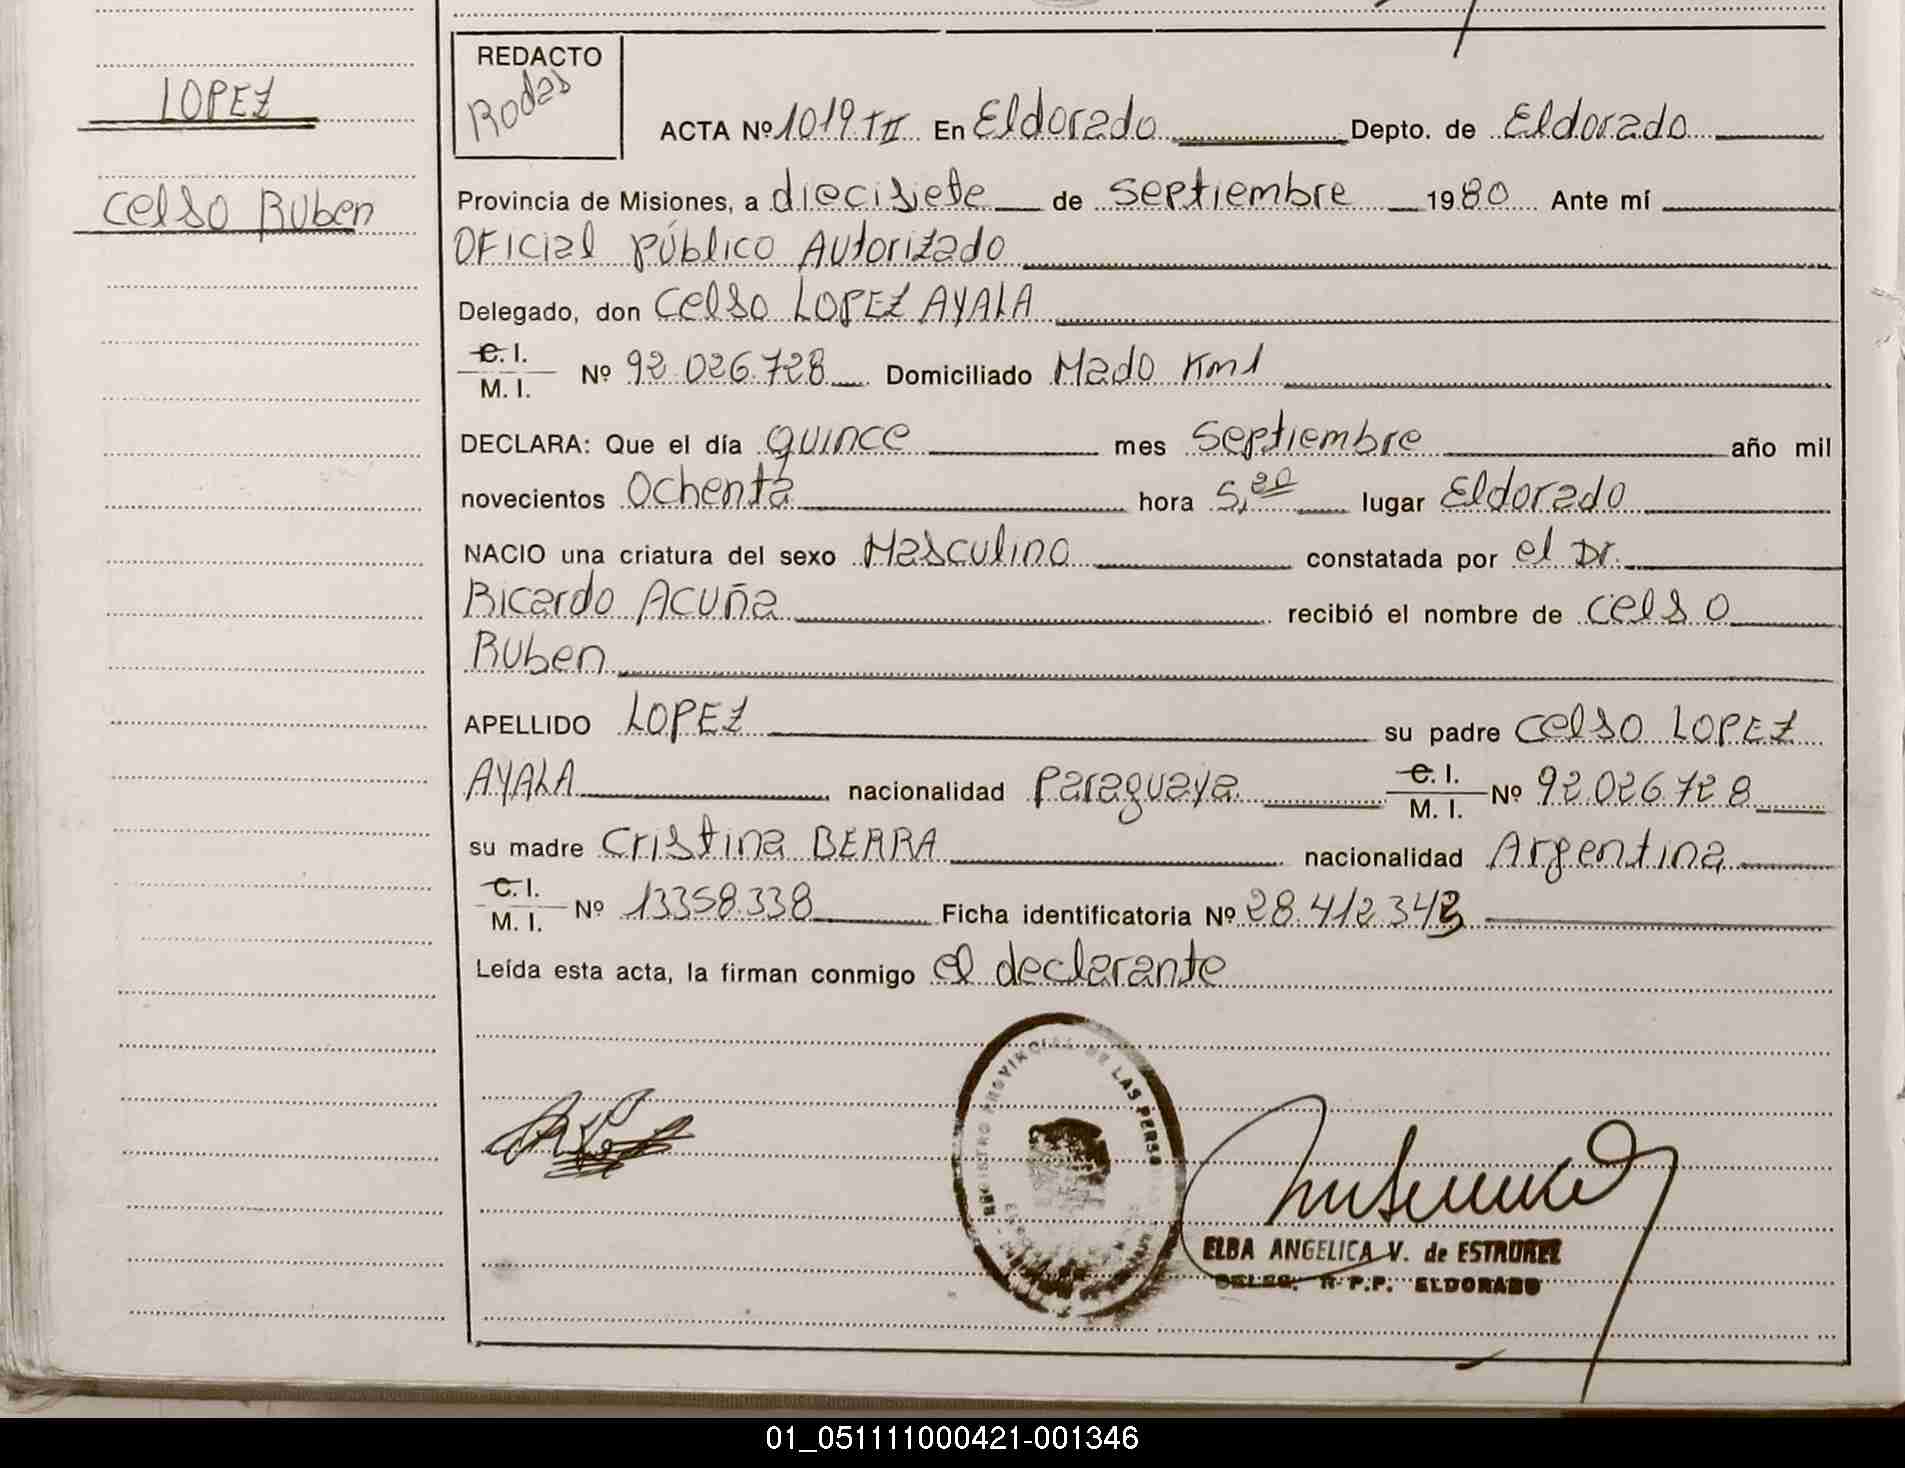 LOPEZ
Celso Ruben
REDACTO
Rodas
ACTA Nº 1019 T II En Eldorado Depto. de Eldorado
Provincia de Misiones, a diecisiete de Septiembre 1980 Ante mí
Oficial Público Autorizado
Delegado, don Celso LOPEZ AYALA
C. I.
M. I. Nº 92.026.728 Domiciliado Mado Km 1
DECLARA: Que el día quince mes Septiembre año mil
novecientos Ochenta hora 5,20 lugar Eldorado
NACIO una criatura del sexo Masculino constatada por el Dr.
Ricardo Acuña recibió el nombre de Celso
Ruben
APELLIDO LOPEZ su padre Celso LOPEZ
AYALA nacionalidad Paraguaya C. I. M. I. Nº 92.026.728
su madre Cristina BERRA nacionalidad Argentina
C. I.
M. I. Nº 13358.338 Ficha identificatoria Nº 28.412.343
Leída esta acta, la firman conmigo el declarante
REGISTRO PROVINCIAL DE LAS PERSO
ELBA ANGELICA V. de ESTRUREZ
DELEG. R.P.P. ELDORADO
01_051111000421-001346